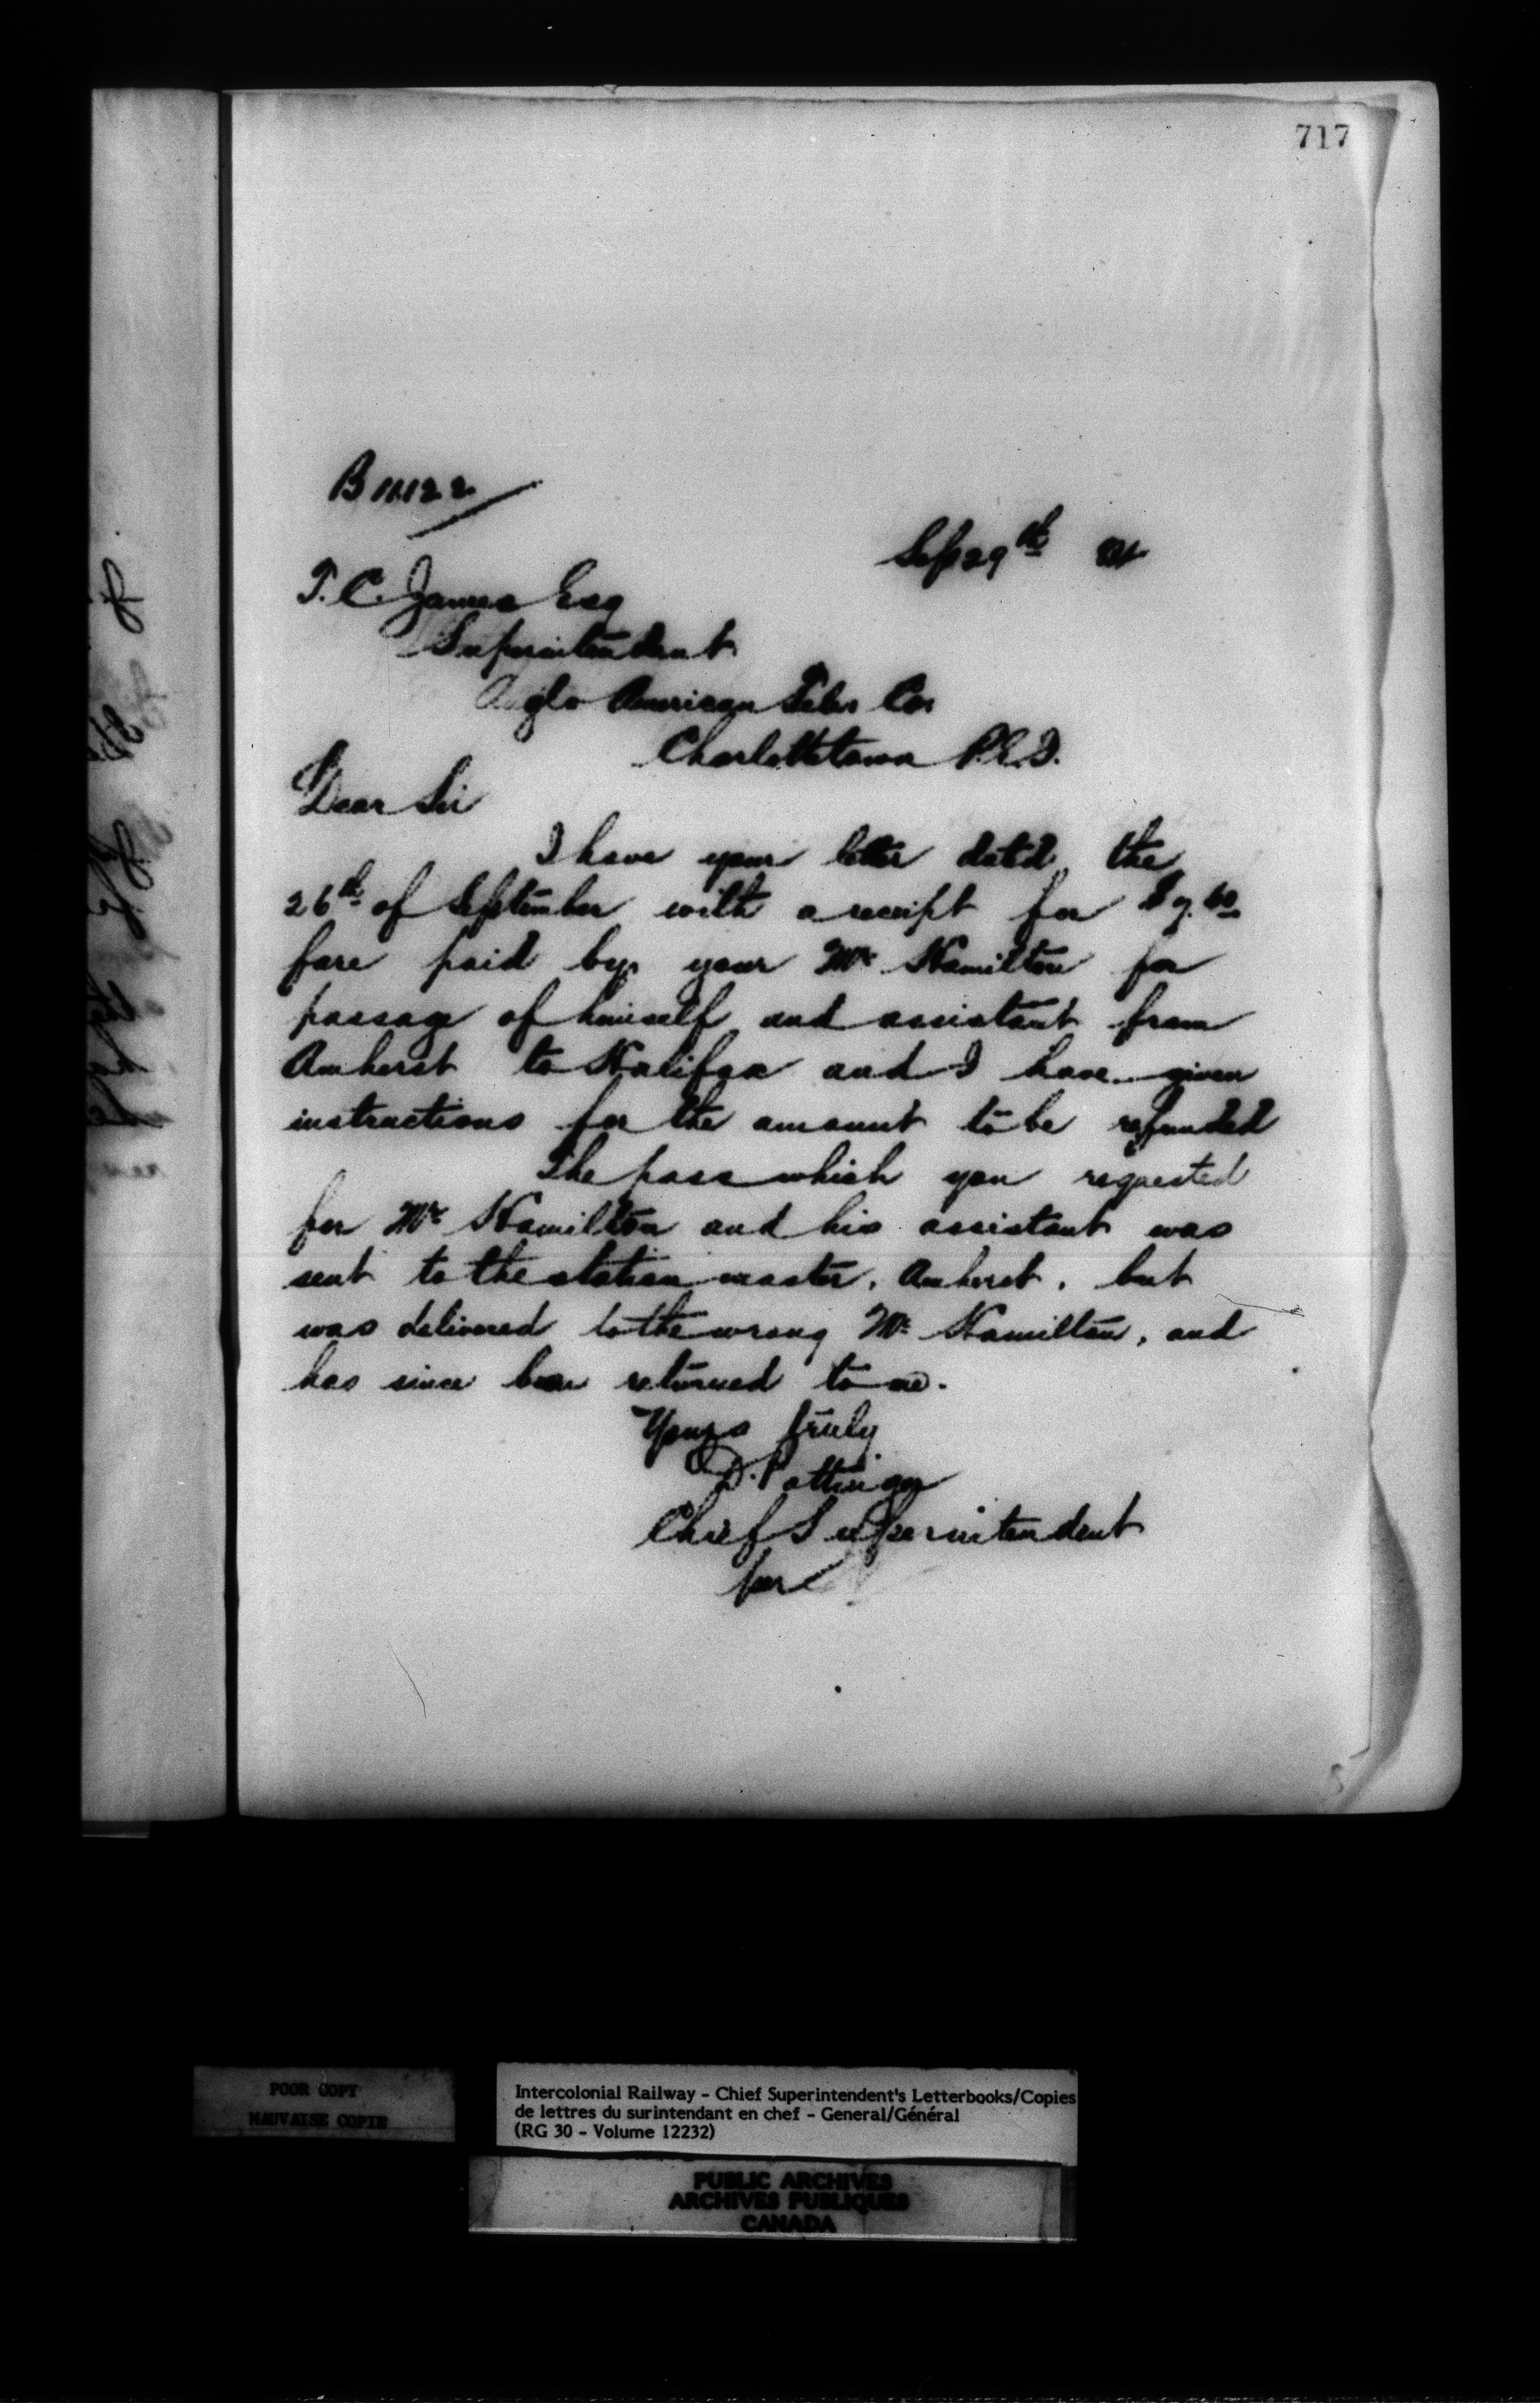 717
B 11122
Sep 29th 81
T. C. James Esq
Superintendent
Anglo American Teler Co.
Charlottetown P.E.I.
Dear Sir
I have your letter dated the
26th of September with a receipt for $7.60
fare paid by your Mr Hamilton for
passage of himself and assistant from
Amherst to Halifax and I have given
instructions for the amount to be refunded
The pass which you requested
for Mr Hamilton and his assistant was
sent to the station master, Amherst, but
was delivered to the wrong Mr Hamilton, and
has since been returned to me.
Yours truly
D. Pottinger
Chief Superintendent
per
POOR COPY
MAUVAISE COPIE
Intercolonial Railway – Chief Superintendent's Letterbooks/Copies
de lettres du surintendant en chef – General/Général
(RG 30 – Volume 12232)
PUBLIC ARCHIVES
ARCHIVES PUBLIQUES
CANADA